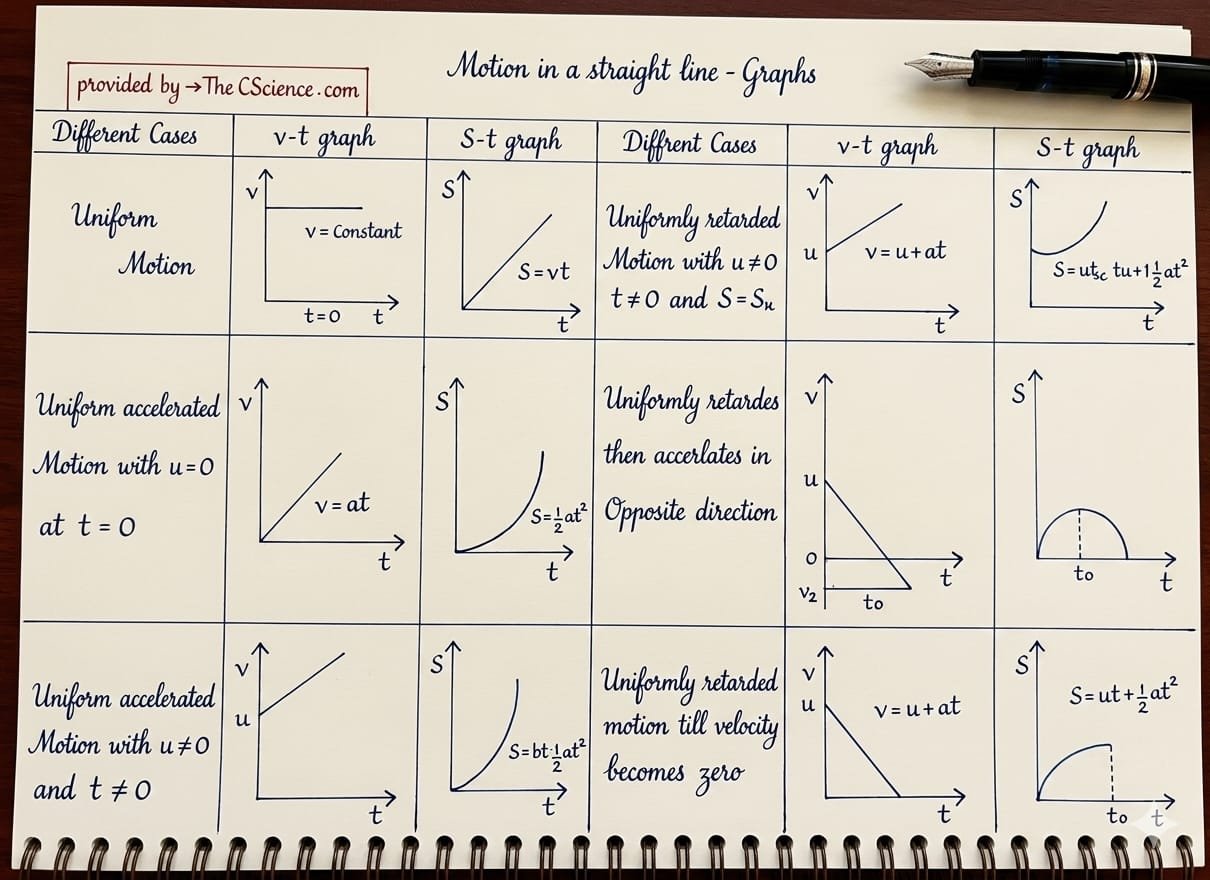 Motion in a straight line - Graphs
provided by → The CScience.com
Different Cases
v-t graph
S-t graph
Diffrent Cases
v-t graph
S-t graph
Uniform
Motion
v
v = Constant
t=0 t
S
S=vt
t
Uniformly retarded
Motion with u≠0
t≠0 and S=Sₖ
v
u
v=u+at
t
S
S=ut
tu+1½at²
t
Uniform accelerated
Motion with u=0
at t = 0
v
v=at
t
S
S=½at²
t
Uniformly retardes
then accerlates in
Opposite direction
v
u
0
v₂
to
t
S
to
t
Uniform accelerated
Motion with u≠0
and t ≠ 0
v
u
t
S
S=bt·½at²
t
Uniformly retarded
motion till velocity
becomes zero
v
u
v=u+at
t
S
S=ut+½at²
to t